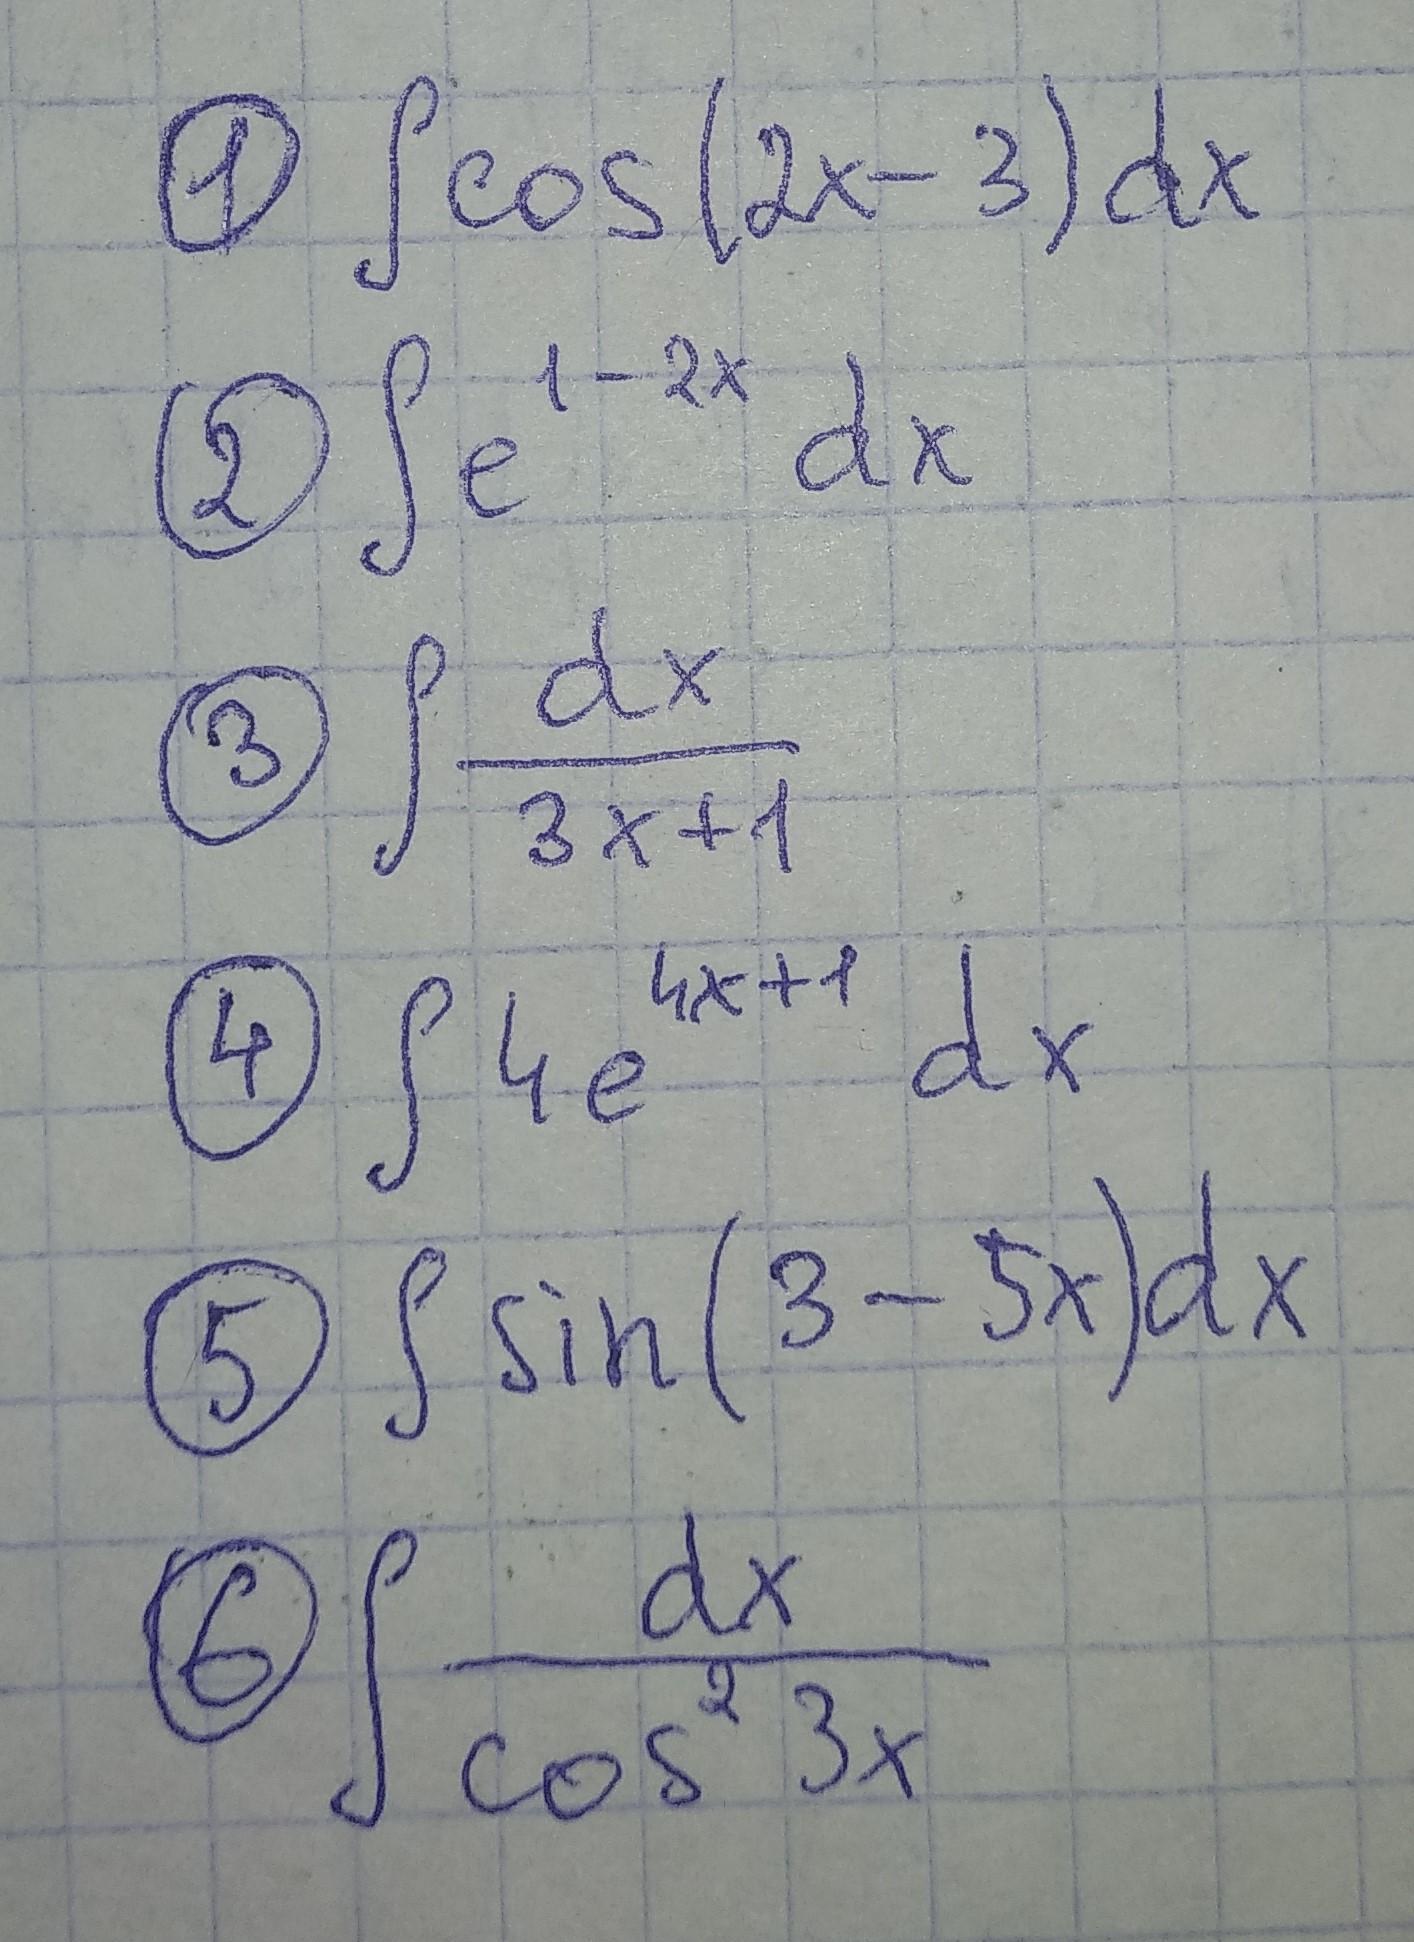 ① ∫cos(2x-3)dx
② ∫e^{1-2x} dx
③ ∫\frac{dx}{3x+1}
④ ∫4e^{4x+1} dx
⑤ ∫sin(3-5x)dx
⑥ ∫\frac{dx}{cos^2 3x}